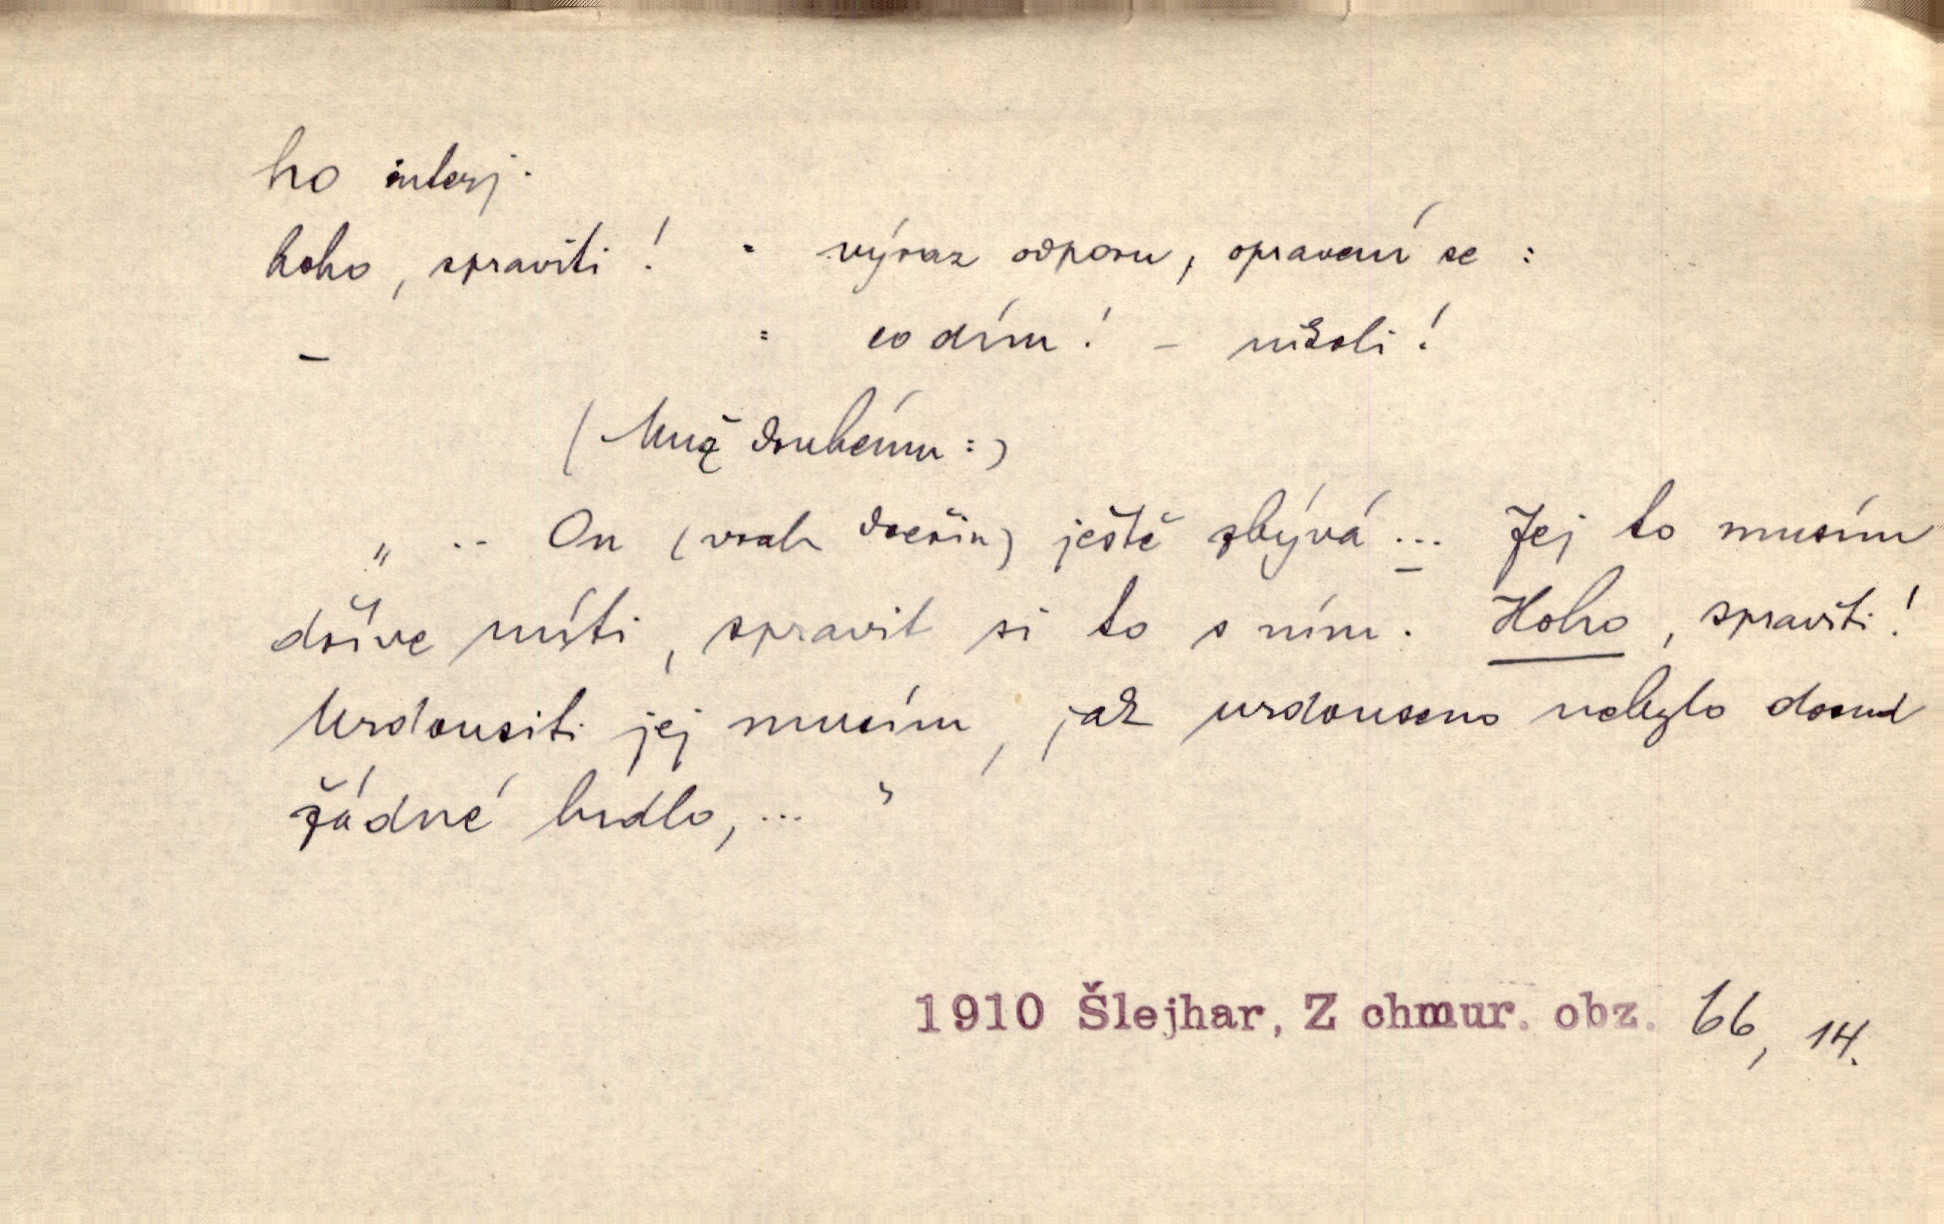 ho interj.
hoho, spraviti! = výraz odporu, opravení se:
– = co dím! – nikoli!
(Muž druhému:)
„ .. On (vrah dceřin) ještě zbývá ... Jej to musím
dříve míti, spravit si to s ním. Hoho, spraviti!
Urdousiti jej musím, jak urdouseno nebylo dosud
žádné hrdlo, ... "
1910 Šlejhar, Z chmur. obz. 66, 14.